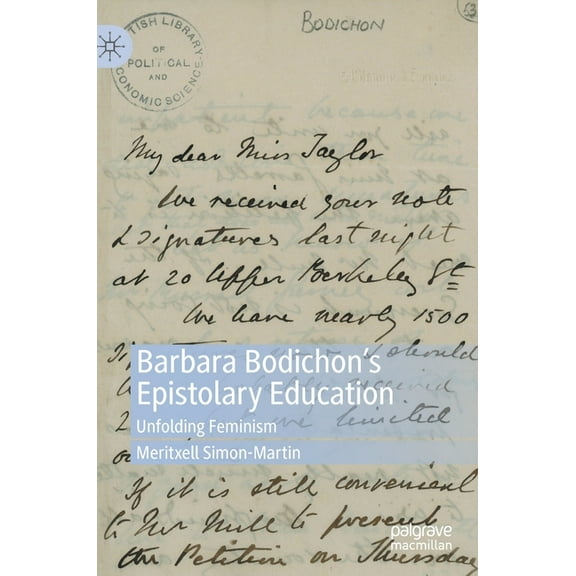 53
BODICHON
BRITISH LIBRARY
OF
POLITICAL
AND
ECONOMIC SCIENCE
My dear Miss Taylor
We received your note
& signatures last night
at 20 Upper Berkeley St
We have nearly 1500
should
received
2 have limited
Barbara Bodichon's
Epistolary Education
Unfolding Feminism
Meritxell Simon-Martin
If it is still convenient
to Mr Mill to present
the Petition on Thursday
palgrave
macmillan